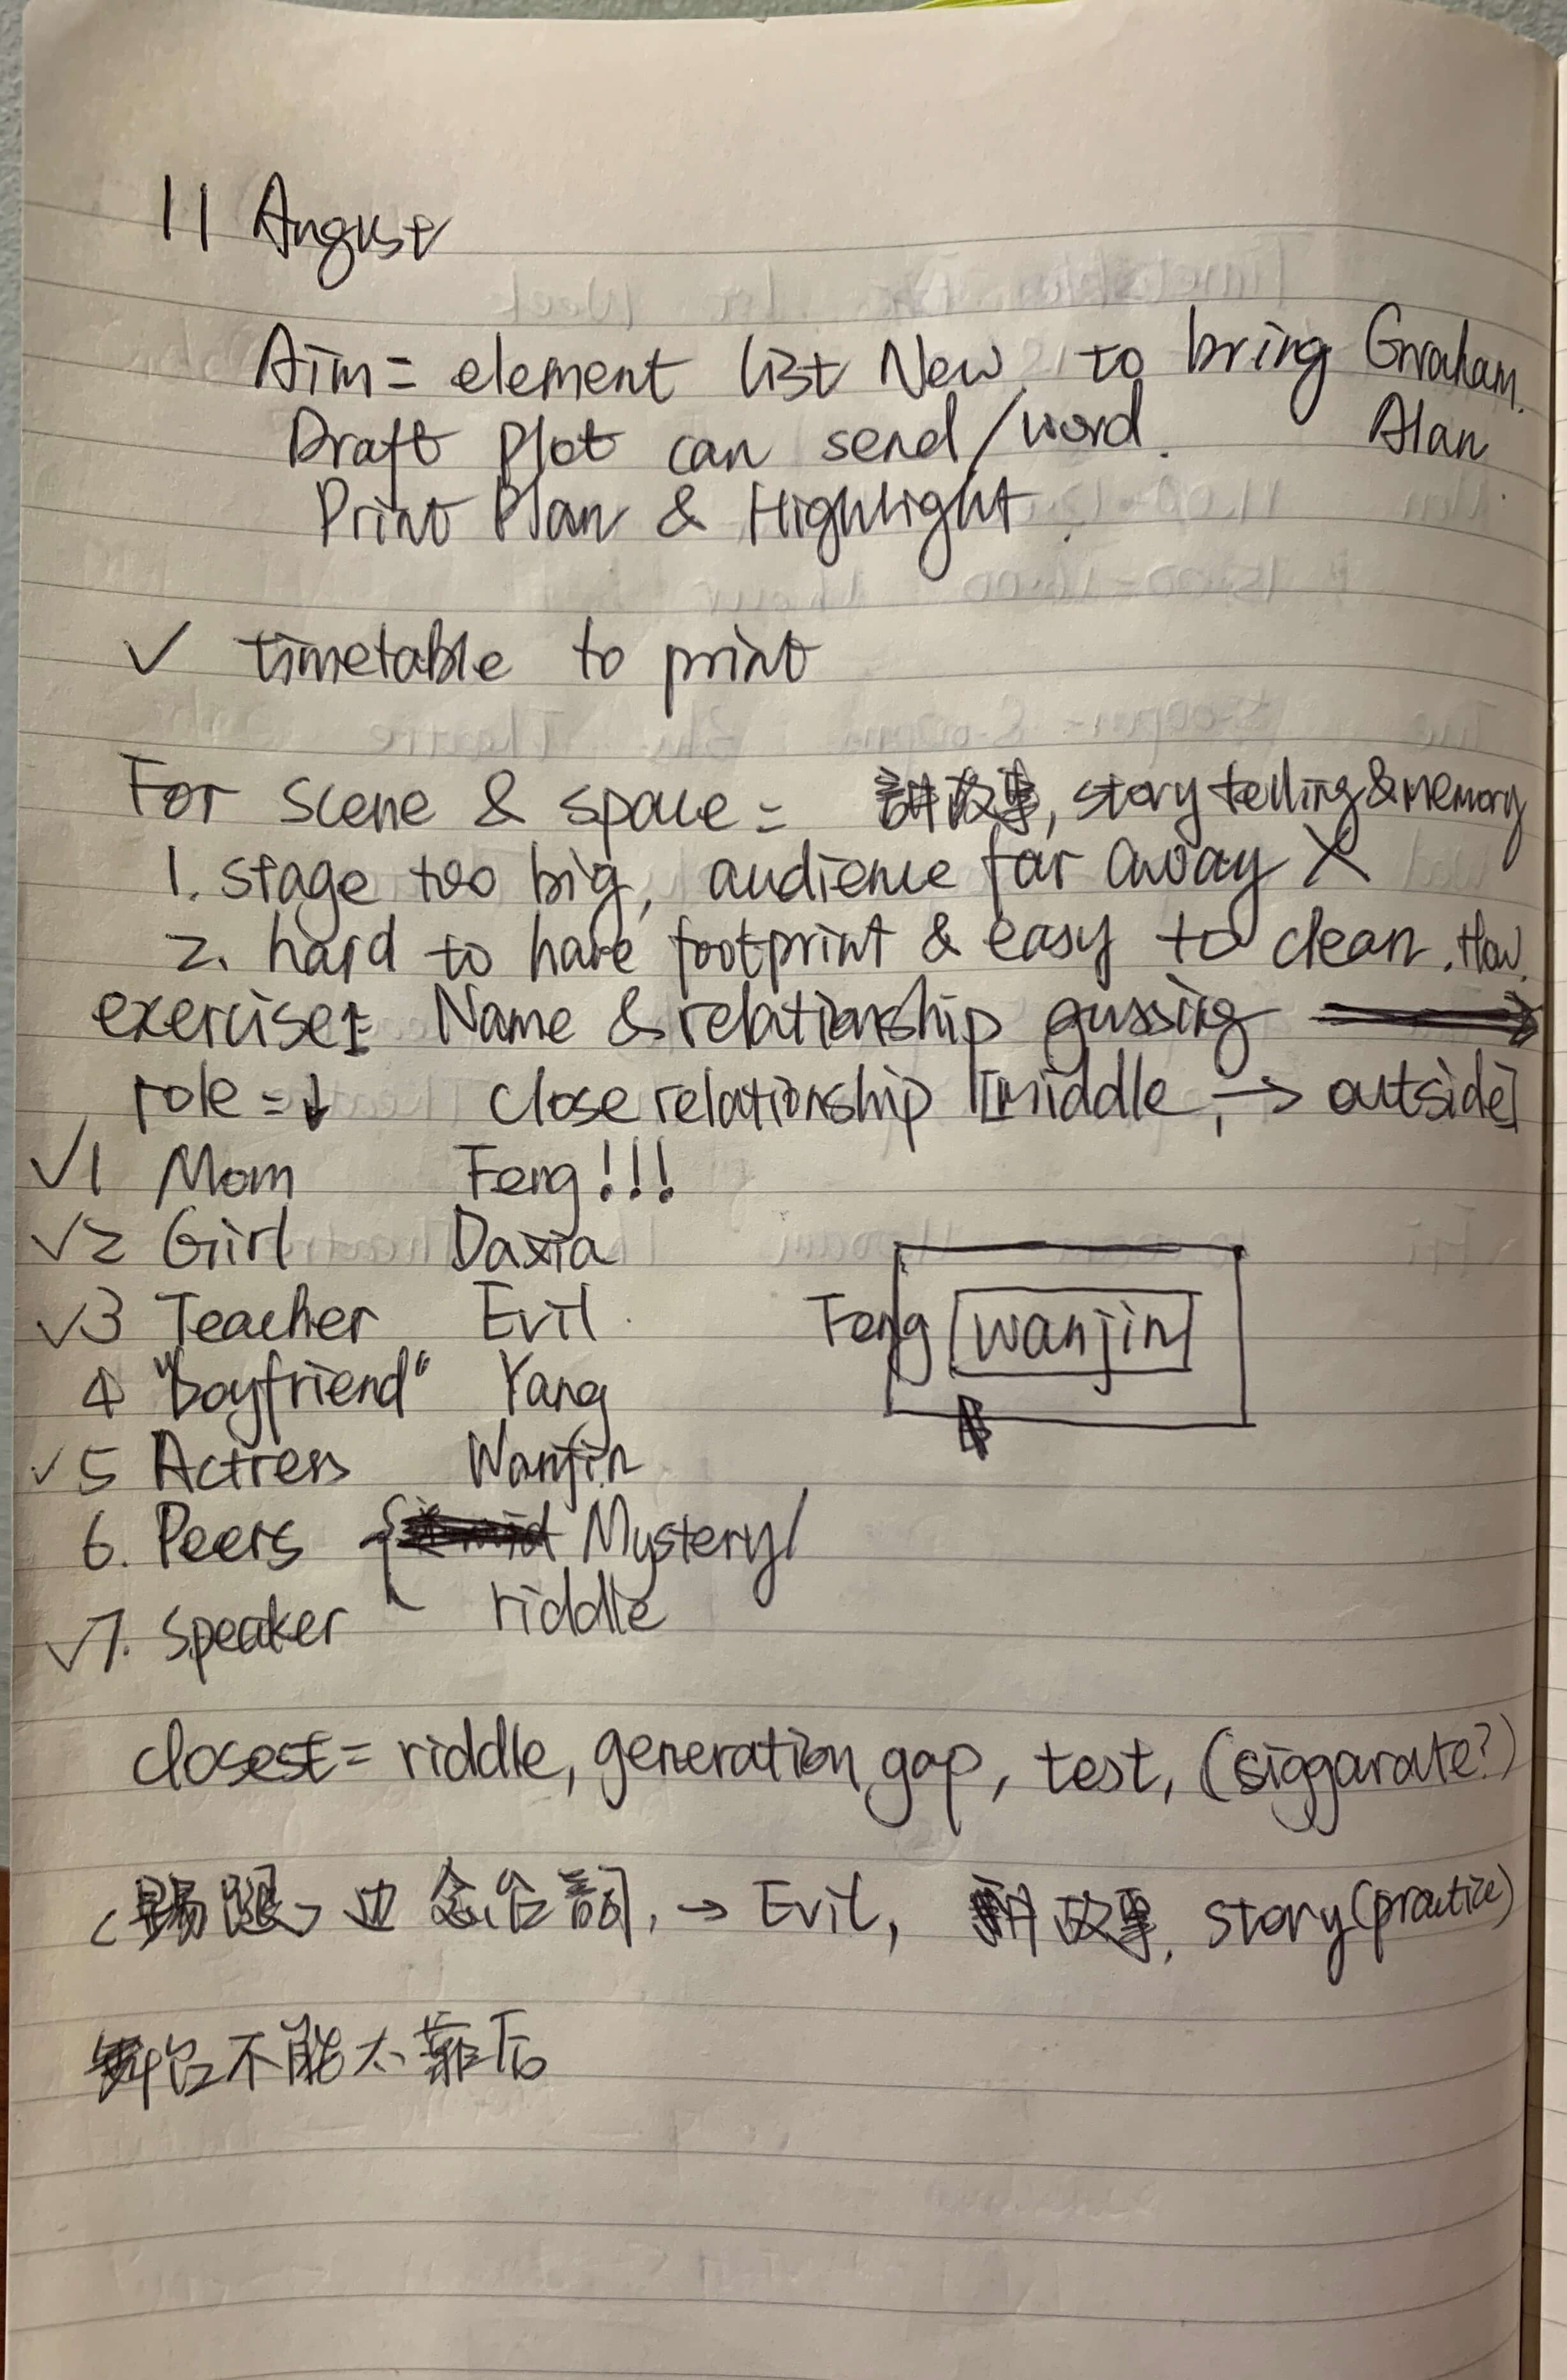 11 August
Aim= element list New to bring Graham.
Draft Plot can send/word. Alan
Print Plan & Highlight.
✓ timetable to print
For scene & space = 講故事, story telling & memory
1. stage too big, audience far away X
2. hard to have footprint & easy to clean. How.
exercise1= Name & relationship gussing →
role = ↓ close relationship [middle, → outside]
✓1 Mom Feng!!!
✓2 Girl Daxia
✓3 Teacher Evil
Feng wanjin
4 "boyfriend" Yang
✓5 Actress Wanjin
6. Peers { Mystery/
✓7. Speaker riddle
closest= riddle, generation gap, test, (siggarate?)
<踢腿> 边 念台詞, → Evil, 講故事, story (practice)
舞台不能太靠后